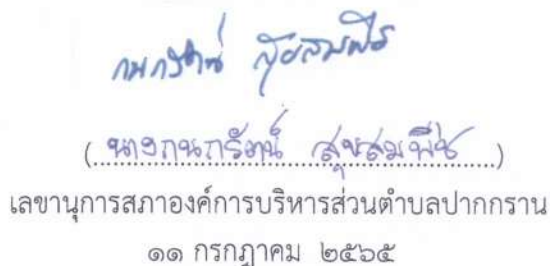 กนกรัตน์ สุขสมพืช
(นางกนกรัตน์ สุขสมพืช)
เลขานุการสภาองค์การบริหารส่วนตำบลปากกราน
๑๑ กรกฎาคม ๒๕๖๕